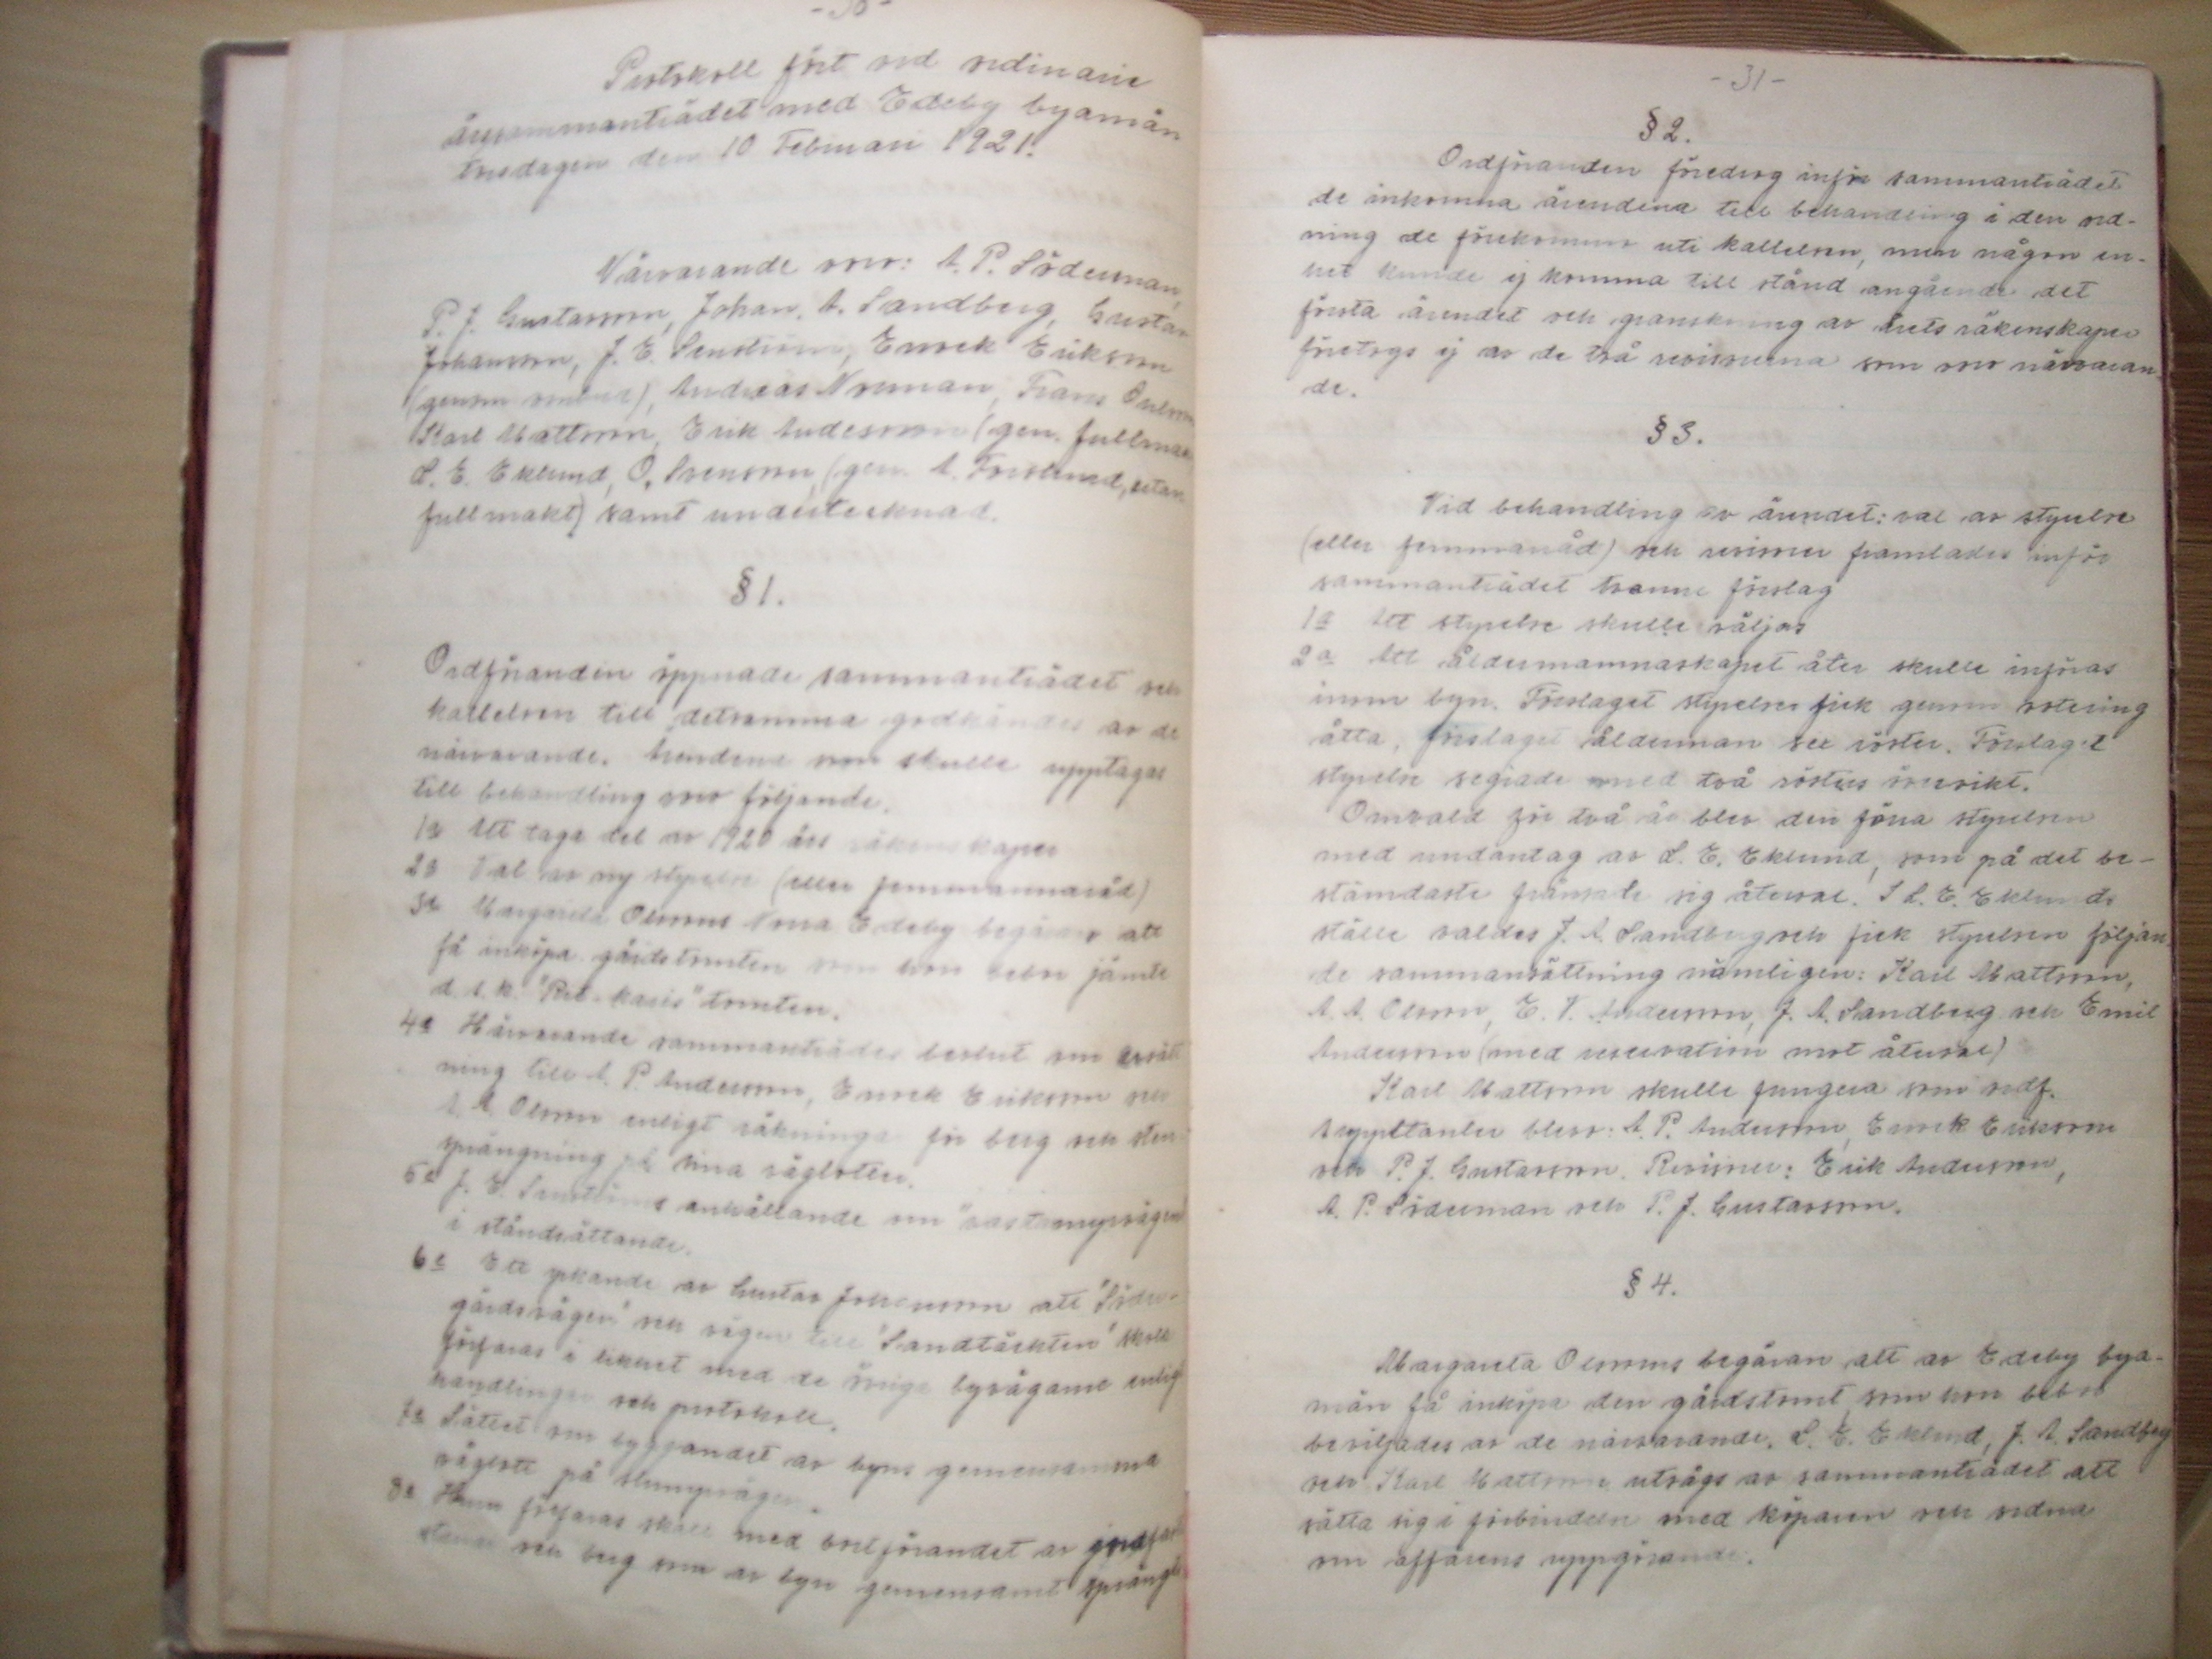 - 30 -
Protokoll fört vid ordinarie
årssammanträdet med Edeby byamän
torsdagen den 10 Februari 1921.
Närvarande voro: A. P. Söderman,
P. J. Gustavsson, Johan. A. Sandberg, Gustav
Johansson, J. E. Enevek Eriksson
(genom ombud), Andreas Norman, Frans
Karl Mattsson, Erik Andersson (gen. fullmakt
L. E. Eklund, O. Svensson, (gen. A. Forslund, utan
fullmakt) samt undertecknad.
§ 1.
Ordföranden öppnade sammanträdet och
kallelsen till detsamma godkändes av de
närvarande. Ärendena som skulle upptagas
till behandling voro följande.
1a Att taga del av 1920 års räkenskaper
2a Val av ny styrelse (eller femmannaråd)
3a Margareta Olssons Norra Edeby begäran att
få inköpa gårdstomten som hon bebor jämte
d. s. k. "Pet-karis" tomten.
4a Härvarande sammanträdes beslut om ersätt
ning till A. P. Andersson, Enevek Eriksson och
A. A. Olsson enligt räkningar för berg och sten
sprängning på sina väglotter.
5a J. E. anhållande om "vastamyrvägens
i ståndsättande.
6a Ett yrkande av Gustav Johansson att 'Söder-
gårdsvägen' och vägen till 'Sandtäckten' skall
förfaras i likhet med de övriga byvägarne enligt
handlingar och protokoll.
7a Sättet om byggandet av byns gemensamma
väglott på
8a Huru förfaras skall med bortförandet av jordfast
stenar och berg som av byn gemensamt sprängts
- 31 -
§ 2.
Ordföranden föredrog inför sammanträdet
de inkomna ärendena till behandling i den ord-
ning de förekommo uti kallelsen, men någon en-
het kunde ej komma till stånd angående det
första ärendet och granskning av årets räkenskaper
företogs ej av de två revisorerna som voro närvaran-
de.
§ 3.
Vid behandling av ärendet: val av styrelse
(eller femmanråd) och revisorer framlades inför
sammanträdet tvänne förslag
1a Att styrelse skulle väljas
2a Att åldermannaskapet åter skulle införas
inom byn. Förslaget styrelse fick genom votering
åtta, förslaget ålderman sex röster. Förslaget
styrelse segrade med två rösters övervikt.
Omvald för två år blev den förra styrelsen
med undantag av L. E. Eklund, som på det be-
stämdaste frånsade sig återval. I L. E. Eklunds
ställe valdes J. A. Sandberg och fick styrelsen följan-
de sammansättning nämligen: Karl Mattsson,
A. A. Olsson, E. V. Andersson, J. A. Sandberg och Emil
Andersson (med reservation mot återval)
Karl Mattsson skulle fungera som ordf.
Suppleanter blevo: A. P. Andersson, Enevek Eriksson
och P. J. Gustavsson. Revisorer: Erik Andersson,
A. P. Söderman och P. J. Gustavsson.
§ 4.
Margareta Olssons begäran att av Edeby bya-
män få inköpa den gårdstomt som hon bebor
beviljades av de närvarande. L. E. Eklund, J. A. Sandberg
och Karl Mattsson utsågs av sammanträdet att
sätta sig i förbindelse med köparen och ordna
om affärens uppgörande.